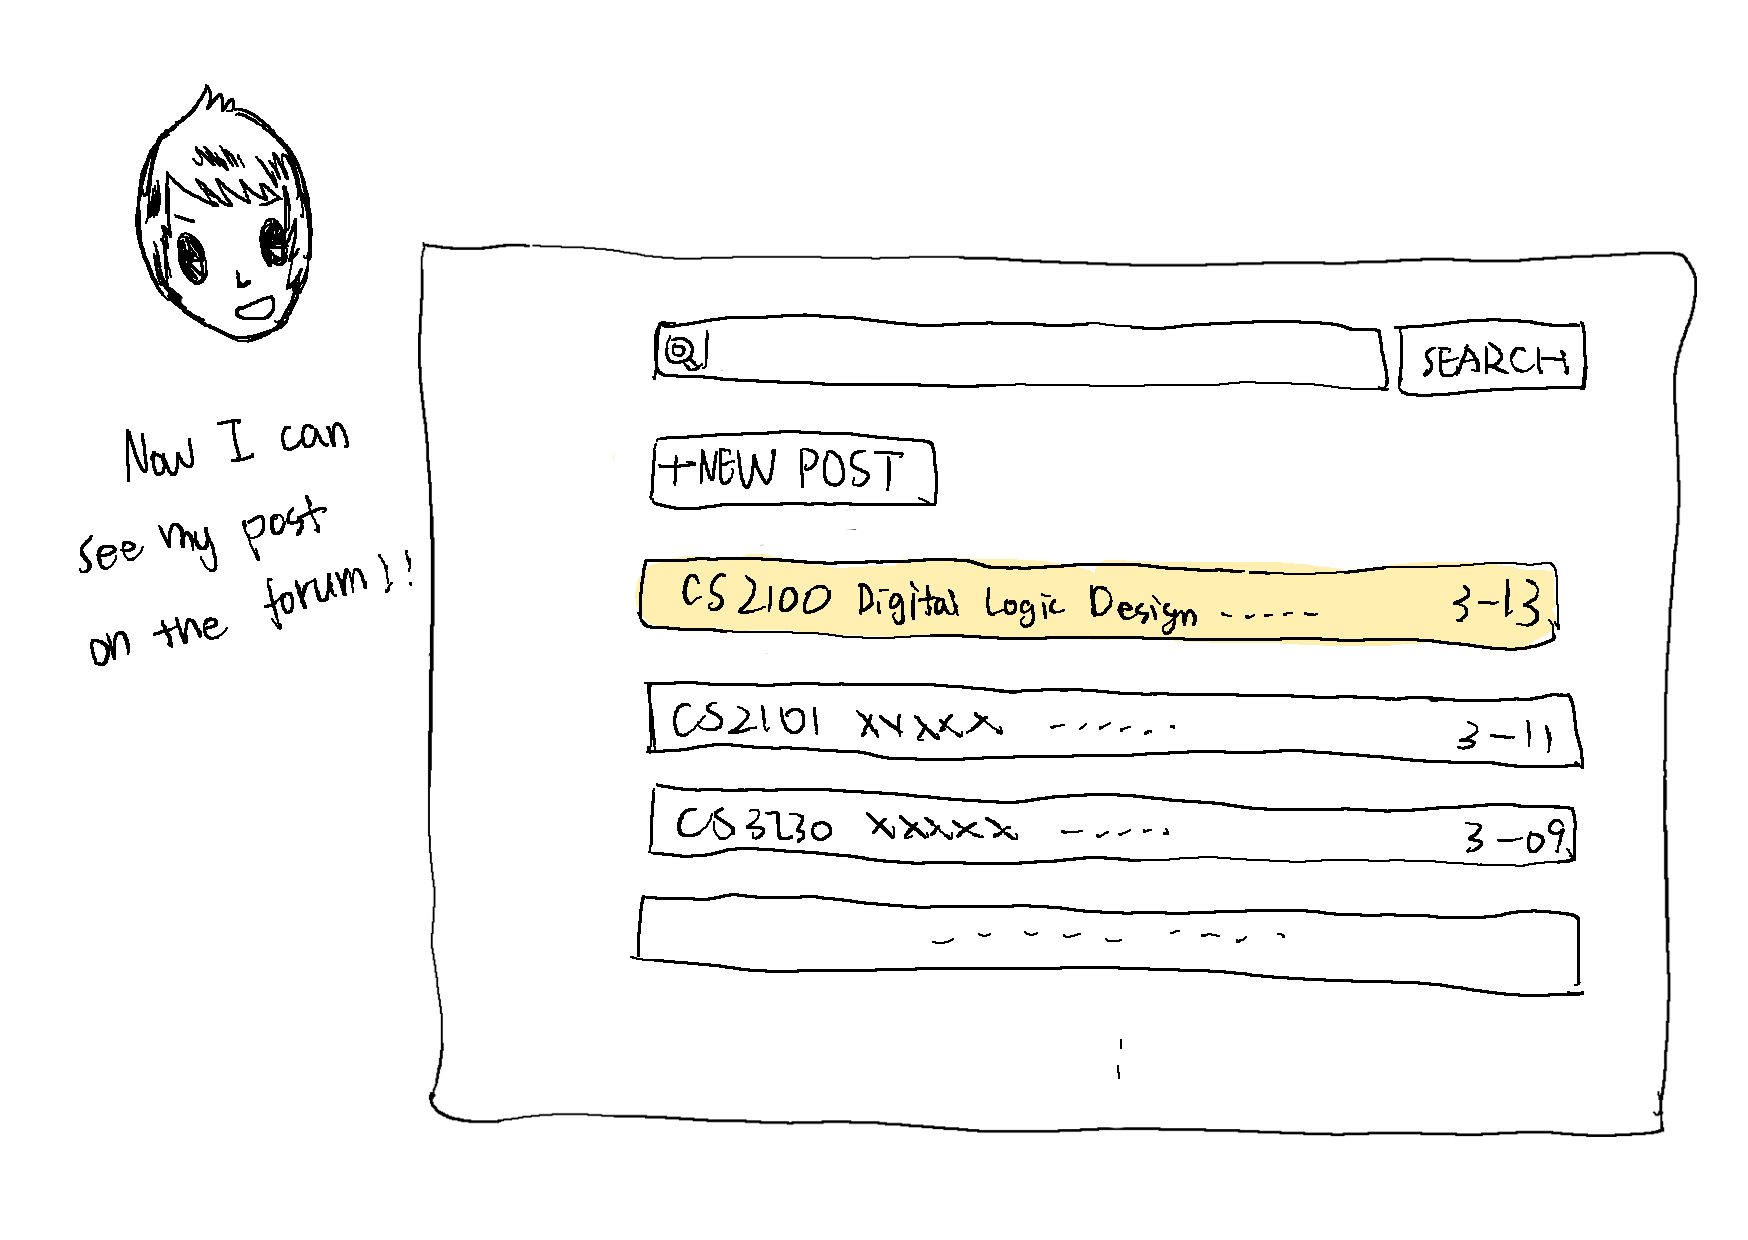 Now I can
see my post
on the forum!!
SEARCH
+NEW POST
CS2100 Digital Logic Design ----- 3-13
CS2101 XXXXX ------ 3-11
CS3230 XXXXX ------ 3-09